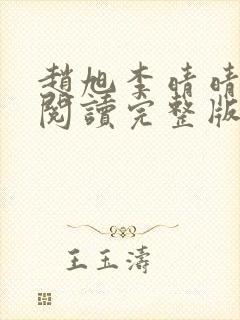 趙旭李晴晴
閱讀完整版
王玉濤